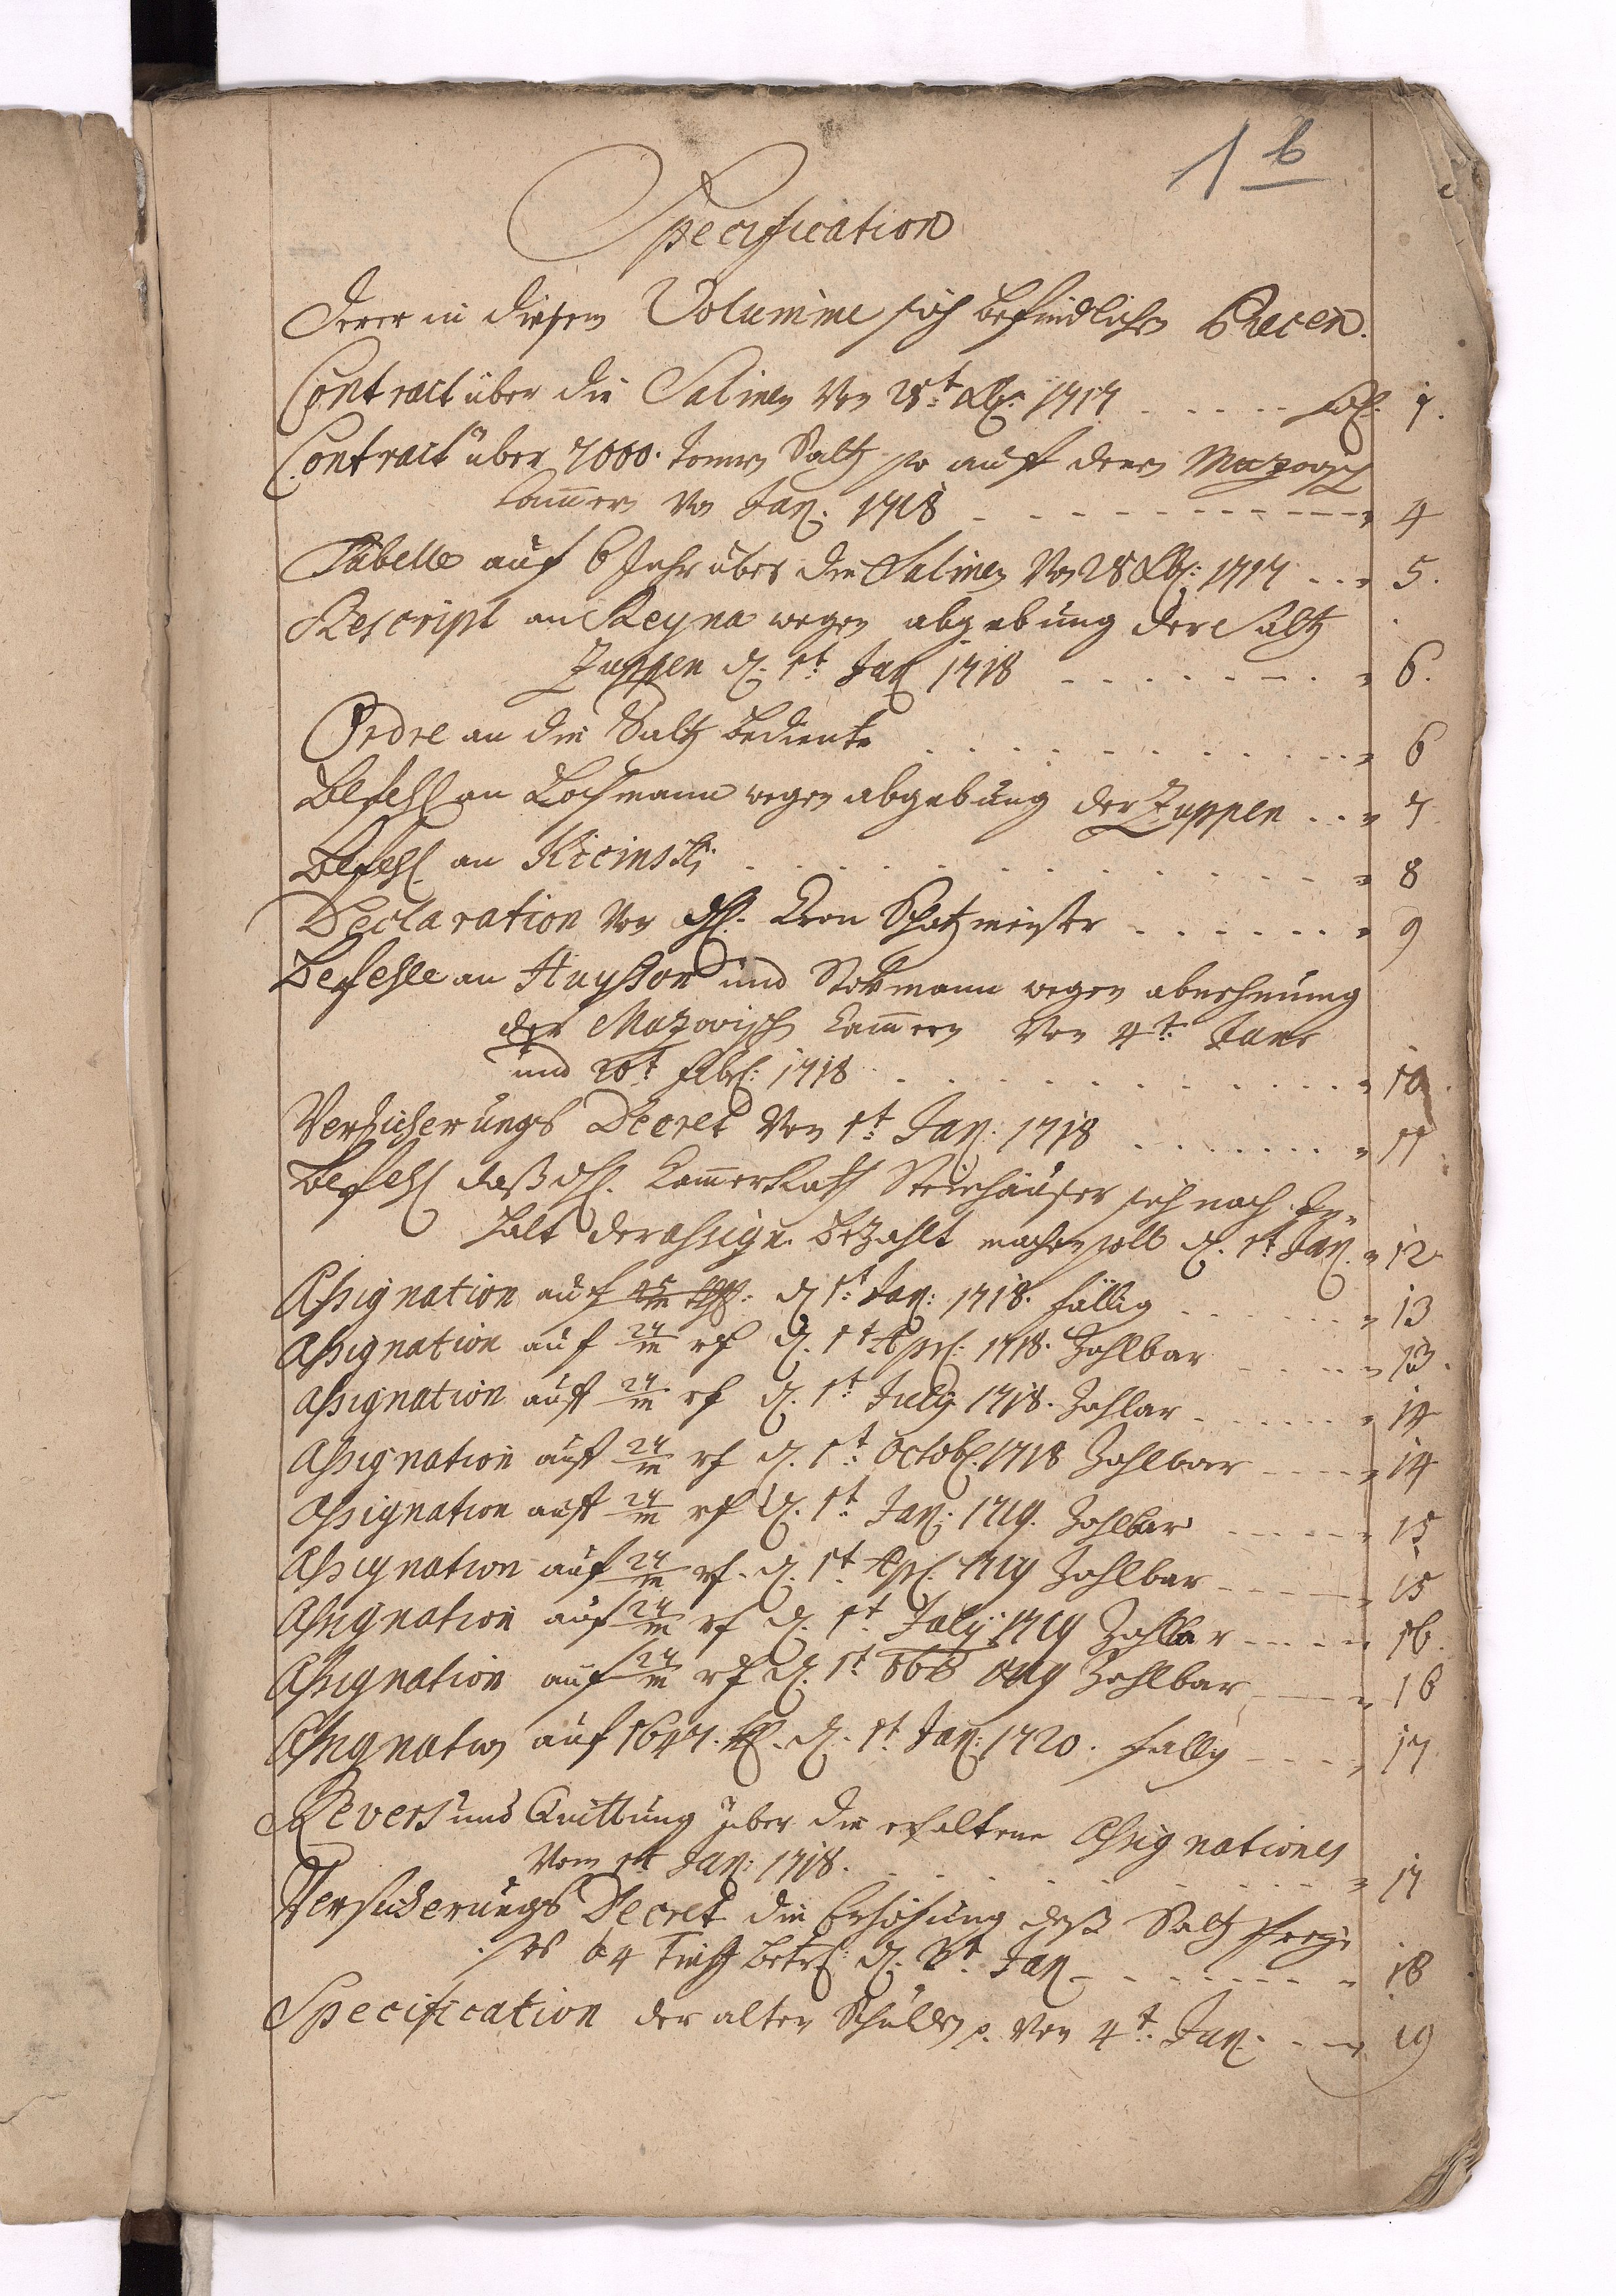 1 b
Specification
Derer in diesem Volumine sich befindlichen Piecen.
Contract über die Salinen Von 28t. Xbr: 1717 fol: 1.
Contract über 7000. Tonnen Saltz so auf denen Mazovisch
Cammern Von Jan: 1718 4
Tabelle auf 6 Jahr über die Salinen Von 28 Xbr: 1717 5.
Rescript an Reyna wegen abgebung der Saltz
Zuppen d. 1t. Jan 1718 6.
Ordre an die Saltz Bediente 6
Befehl an Lochmann wegen abgebung der Zuppen 7
Befehl an Kicinski 8
Declaration Von H. Cron Schatzmeister 9
Befehle an Huysson und Stockmann wegen abnehmung
der Mazovisch Cammern Von 4t. Janr
und 20t Febr: 1718 10
Versicherungs Decret Von 1t. Jan: 1718 11
Befehl daß H. Cammer Rath Steinhäuser sich nach In-
halt der assign. bezahlt machen soll d. 1t. Jan. 12
Assignation auf d 1t. Jan: 1718. fällig 13
Assignation auf 24/m rf d. 1t Apr: 1718. Zahlbar 13.
Assignation auf 24/m rf d. 1t. July 1718. Zahlar 14
Assignation auf 24/m rf d. 1t. Octobr. 1718 Zahlbar 14
Assignation auf 24/m rf d. 1t. Jan: 1719. Zahlbar 15
Assignation auf 24/m rf. d. 1t. Apr. 1719 Zahlbar 15
Assignation auf 24/m rf d. 1t. July 1719 Zahlbar 16.
Assignation auf 24/m rf d. 1t. 8br 1719 Zahlbar 16
Assignation auf 1647. d. 1t. Jan: 1720. fällig 17
Revers und Quittung über die erhaltene Assignationes
Vom 1t Jan: 1718. 17
Versicherungs Decret die Erhöhung deß Saltz Preiß
64 betrf: d. Jan 18
Specification der alten Schulden p. Von 4t. Jan. 19